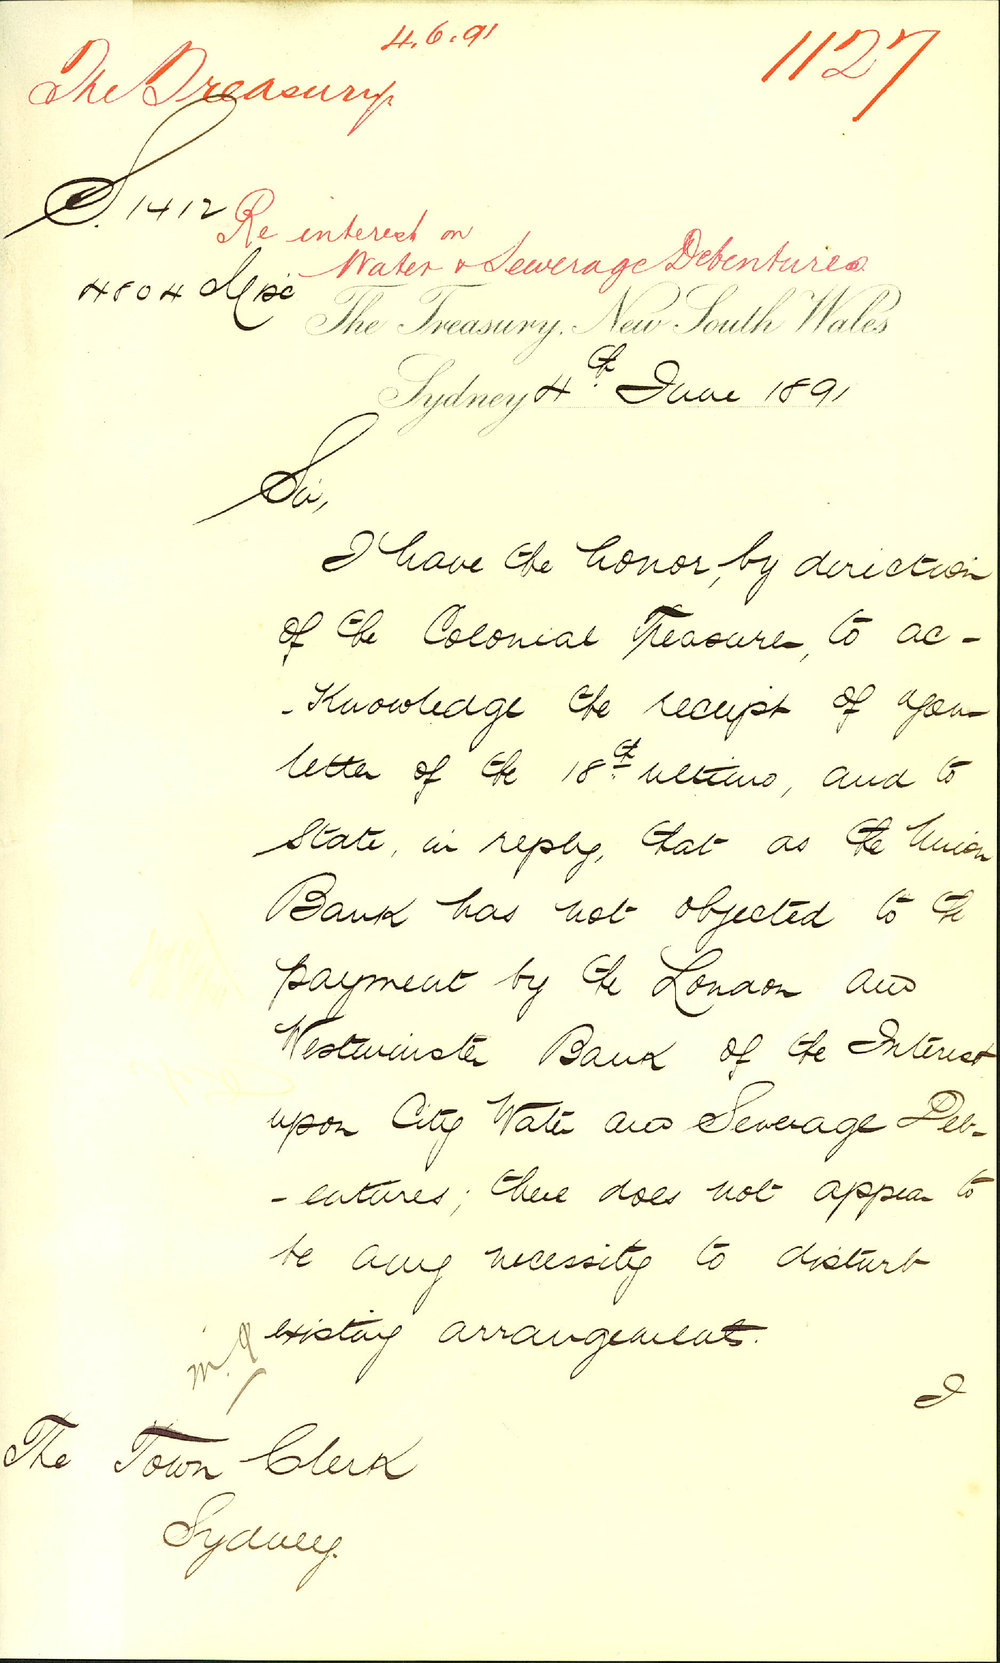 4.6.91
The Treasury
1127
S. 1412
Re interest on
Water & Sewerage Debentures
4804 Misc
The Treasury, New South Wales
Sydney 4th June 1891
Sir,
I have the honor, by direction
of the Colonial Treasurer, to ac-
-knowledge the receipt of your
letter of the 18th ultimo, and to
state, in reply, that as the Union
Bank has not objected to the
payment by the London and
Westminster Bank of the Interest
upon City Water and Sewerage Deb-
-entures; there does not appear to
be any necessity to disturb
existing arrangements.
I
The Town Clerk
Sydney.